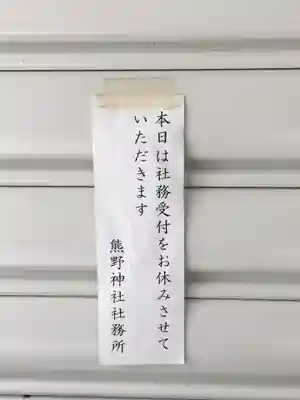 本日は社務受付をお休みさせて
いただきます
熊野神社社務所